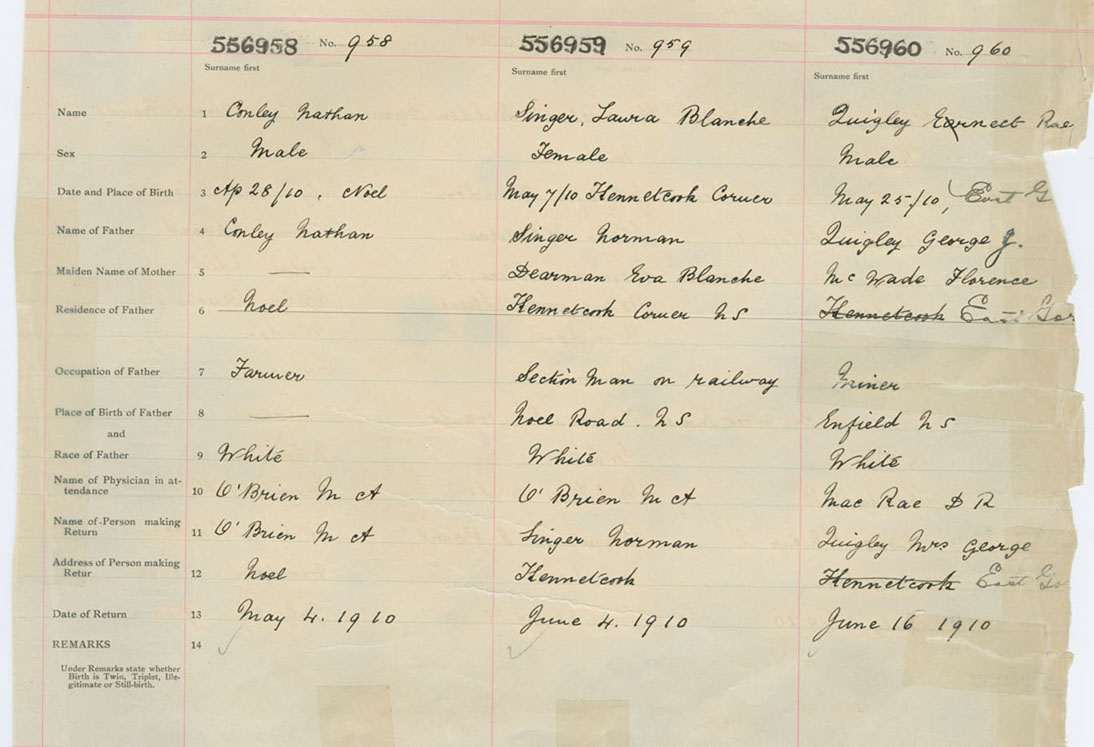 556958 No. 958 556959 No. 959 556960 No. 960
Surname first Surname first Surname first
Name 1 Conley Nathan Singer, Laura Blanche Quigley Earnest Rae
Sex 2 Male Female Male
Date and Place of Birth 3 Ap 28/10. Noel May 7/10 Kennetcook Corner May 25/10, East G
Name of Father 4 Conley Nathan Singer Norman Quigley George J.
Maiden Name of Mother 5 — Dearman Eva Blanche McWade Florence
Residence of Father 6 Noel Kennetcook Corner NS Kennetcook East Gor
Occupation of Father 7 Farmer Section Man on railway Miner
Place of Birth of Father 8 — Noel Road. NS Enfield NS
and
Race of Father 9 White White White
Name of Physician in at-
tendance 10 O'Brien M A O'Brien M A MacRae D R
Name of Person making
Return 11 O'Brien M A Singer Norman Quigley Mrs George
Address of Person making
Retur 12 Noel Kennetcook Kennetcook East Go
Date of Return 13 May 4. 1910 June 4. 1910 June 16 1910
REMARKS 14
Under Remarks state whether
Birth is Twin, Triplet, Ille-
gitimate or Still-birth.